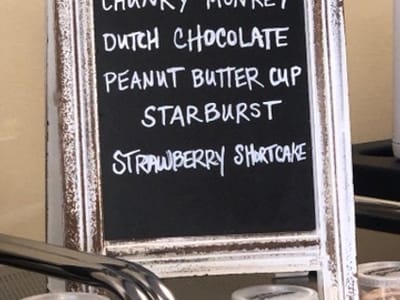 CHUNKY MONKEY
DUTCH CHOCOLATE
PEANUT BUTTER CUP
STARBURST
STRAWBERRY SHORTCAKE